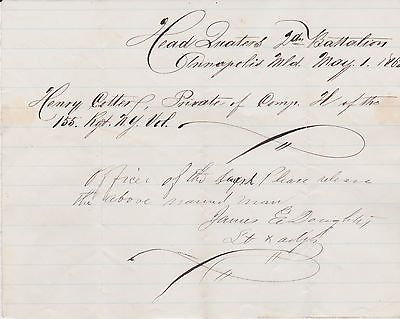 Head Quaters 2dn Battalion
Annapolis Md. May. 1. 186
Henry Cotter, Private of Comp. H of the
155. Rgt. N.Y. Vol.
Officer of the Guard Please release
the above named man
James E. Doughty
Lt & adjt